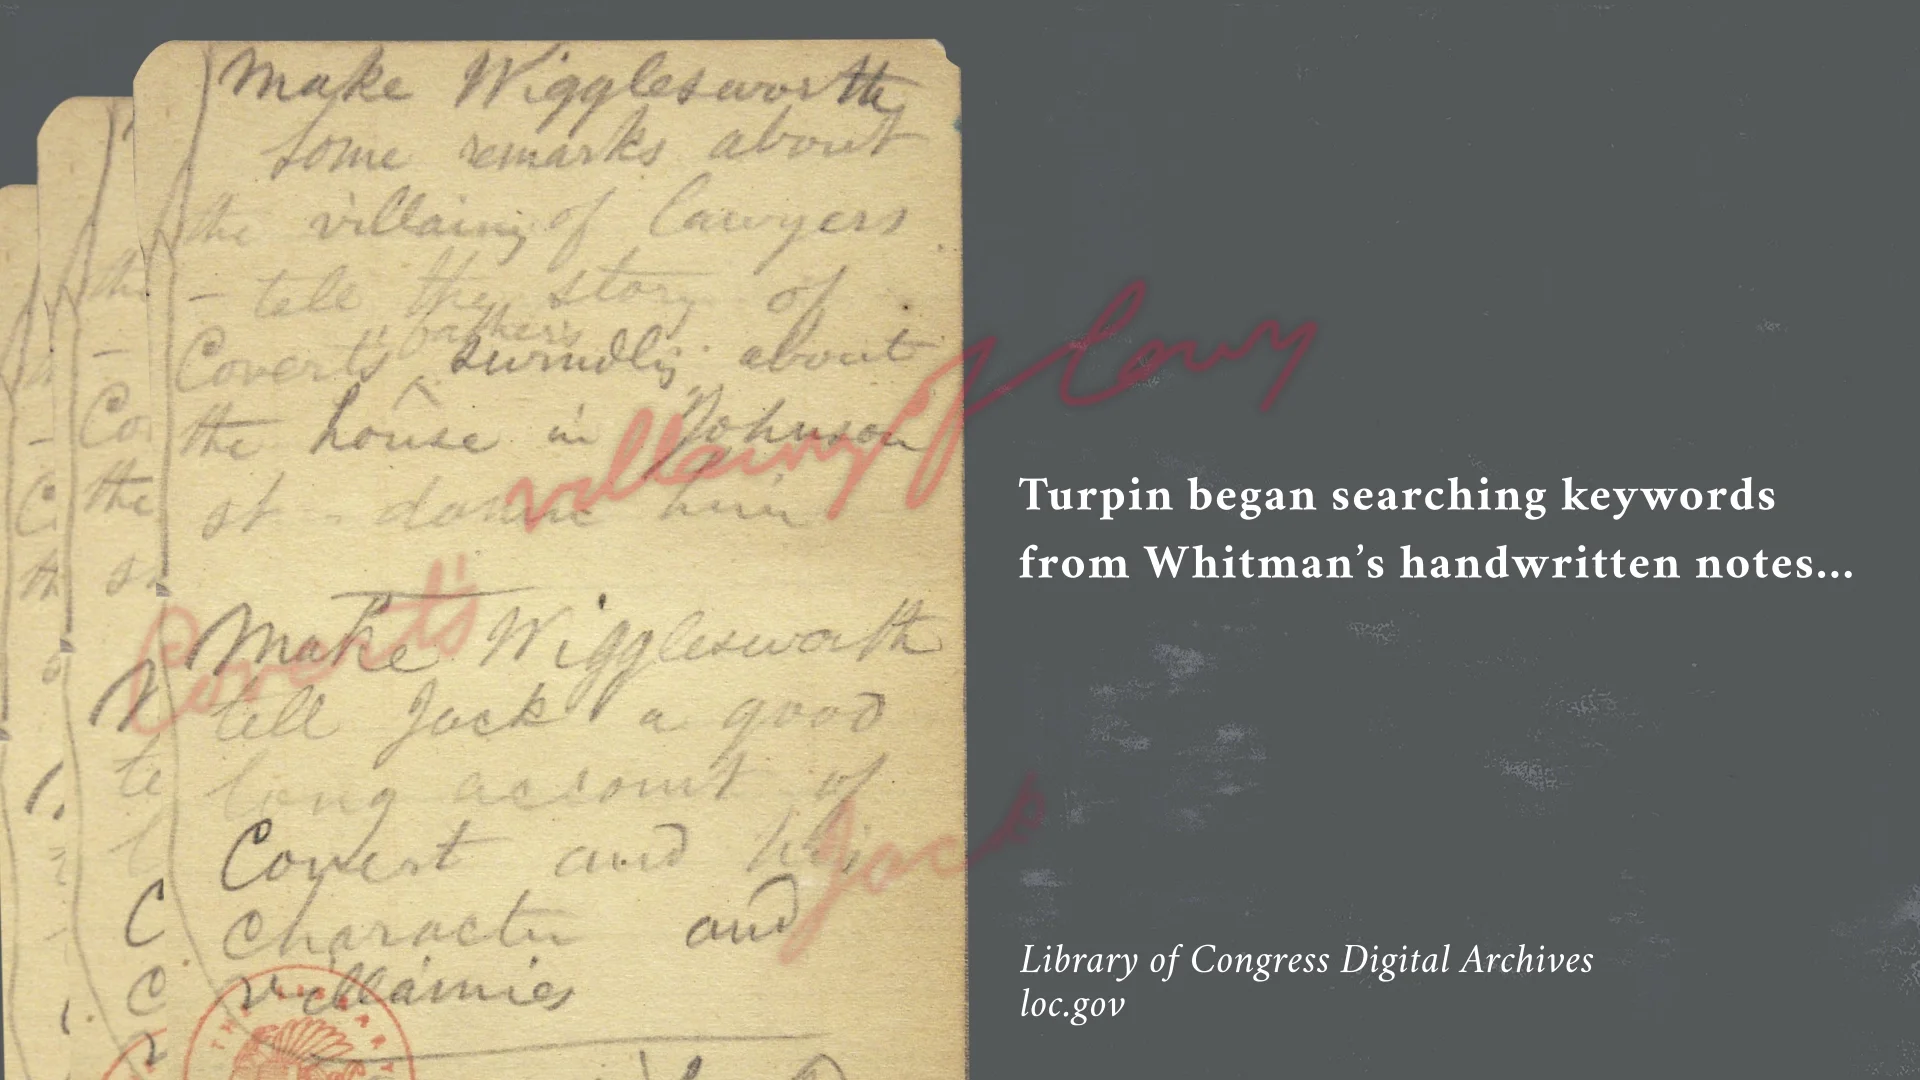 Make Wigglesworth
some remarks about
the villainy of lawyers
– tell the story of
father's
Covert's swindling about
the house in Johnson
st – done him
Make Wigglesworth
tell Jack a good
long account of
Covert and his
character and
villainies
villainy of lawy
Covert's
Jack
Turpin began searching keywords
from Whitman’s handwritten notes...
Library of Congress Digital Archives
loc.gov